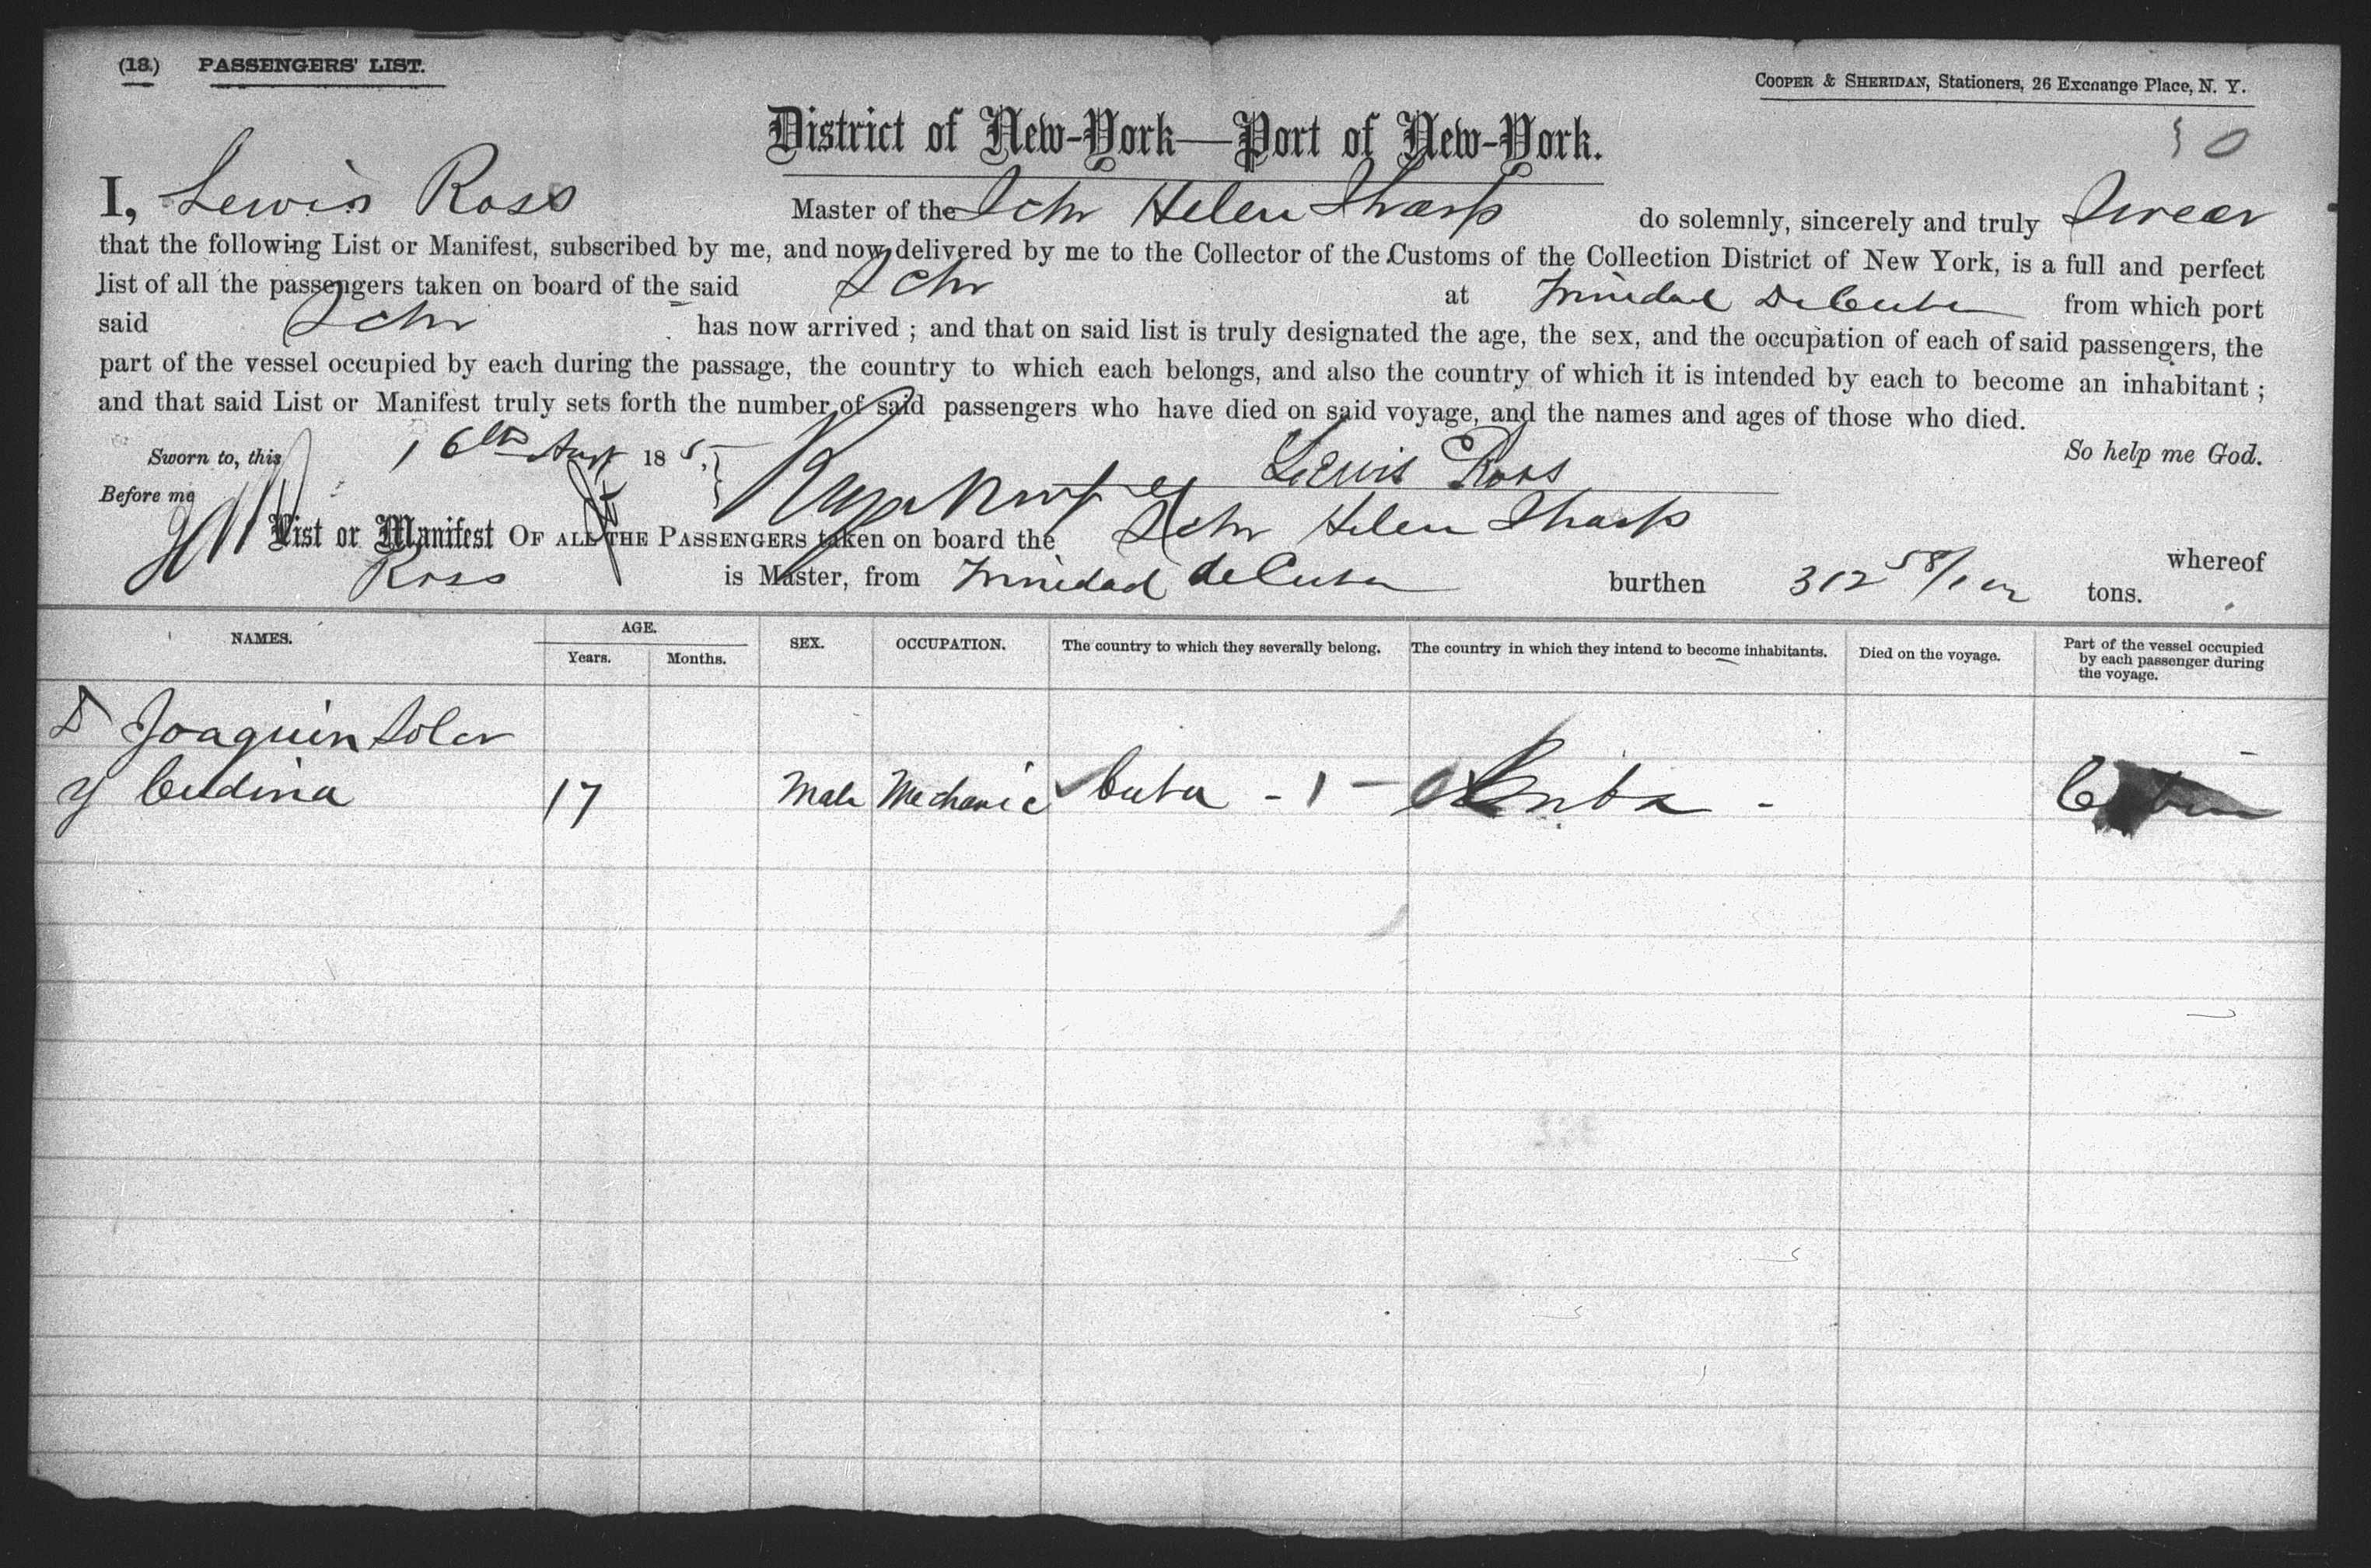 (13.) PASSENGERS' LIST.
COOPER & SHERIDAN, Stationers, 26 Exchange Place, N. Y.
District of New-York—Port of New-York.
I, Lewis Ross Master of the Schr Helen Sharp do solemnly, sincerely and truly Swear
that the following List or Manifest, subscribed by me, and now delivered by me to the Collector of the Customs of the Collection District of New York, is a full and perfect
list of all the passengers taken on board of the said Schr at Trinidad De Cuba from which port
said Schr has now arrived ; and that on said list is truly designated the age, the sex, and the occupation of each of said passengers, the
part of the vessel occupied by each during the passage, the country to which each belongs, and also the country of which it is intended by each to become an inhabitant ;
and that said List or Manifest truly sets forth the number of said passengers who have died on said voyage, and the names and ages of those who died.
Sworn to, this 16th 18 Lewis Ross So help me God.
Before me
List or Manifest OF ALL THE PASSENGERS taken on board the Schr Helen Sharp whereof
Ross is Master, from Trinidad de Cuba burthen 312 58/100 tons.
NAMES. AGE. Years. Months. SEX. OCCUPATION. The country to which they severally belong. The country in which they intend to become inhabitants. Died on the voyage. Part of the vessel occupied by each passenger during the voyage.
D Joaquin Soler
y Cudina 17 Male Mechanic Cuba - 1 - Cuba - Cabin